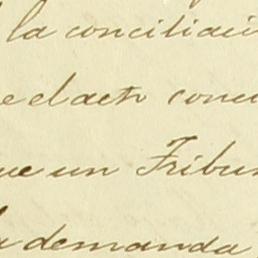 la conciliaci
e el acto conci
ue un Tribun
a demanda